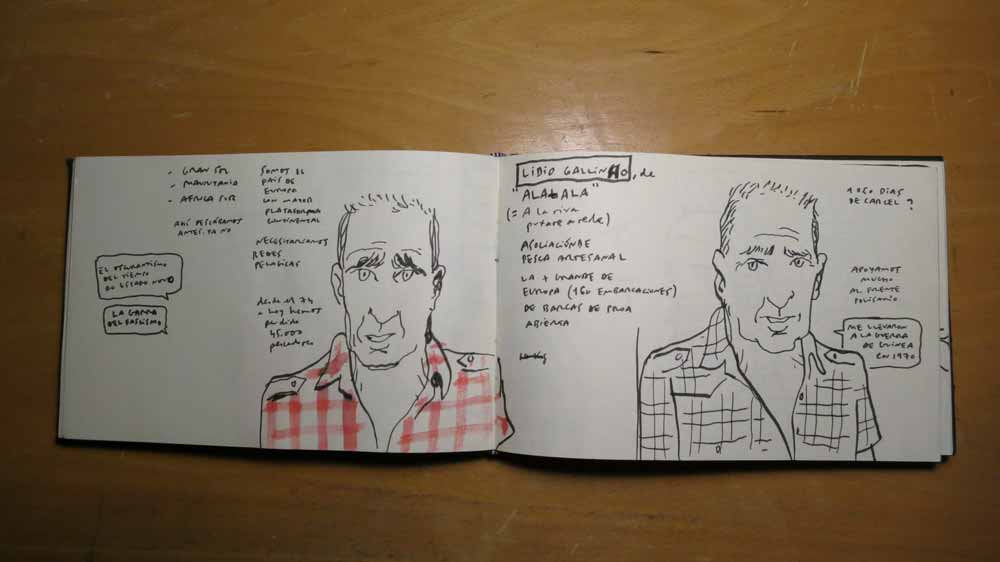 - GRAN SOL
- MAURITANIA
- AFRICA SUR
AHÍ PESCÁBAMOS
ANTES. YA NO
SOMOS EL
PAÍS DE
EUROPA
CON MAYOR
PLATAFORMA
CONTINENTAL
NECESITARÍAMOS
REDES
PELÁGICAS
desde el 74
a hoy hemos
perdido
45.000
pescadores
EL OSCURANTISMO
DEL TIEMPO
DO ESTADO NOVO
LA GARRA
DEL FASCISMO
LIDIO GALLINHO, de
"ALARALA"
(= A la riva
redes)
ASOCIACIÓN DE
PESCA ARTESANAL
LA + GRANDE DE
EUROPA (160 EMBARCACIONES)
DE BARCAS DE PROA
ABIERTA
DIAS
DE CARCEL ?
APOYAMOS
MUCHO
AL FRENTE
POLISARIO
ME LLEVARON
A LA GUERRA
DE GUINEA
EN 1970